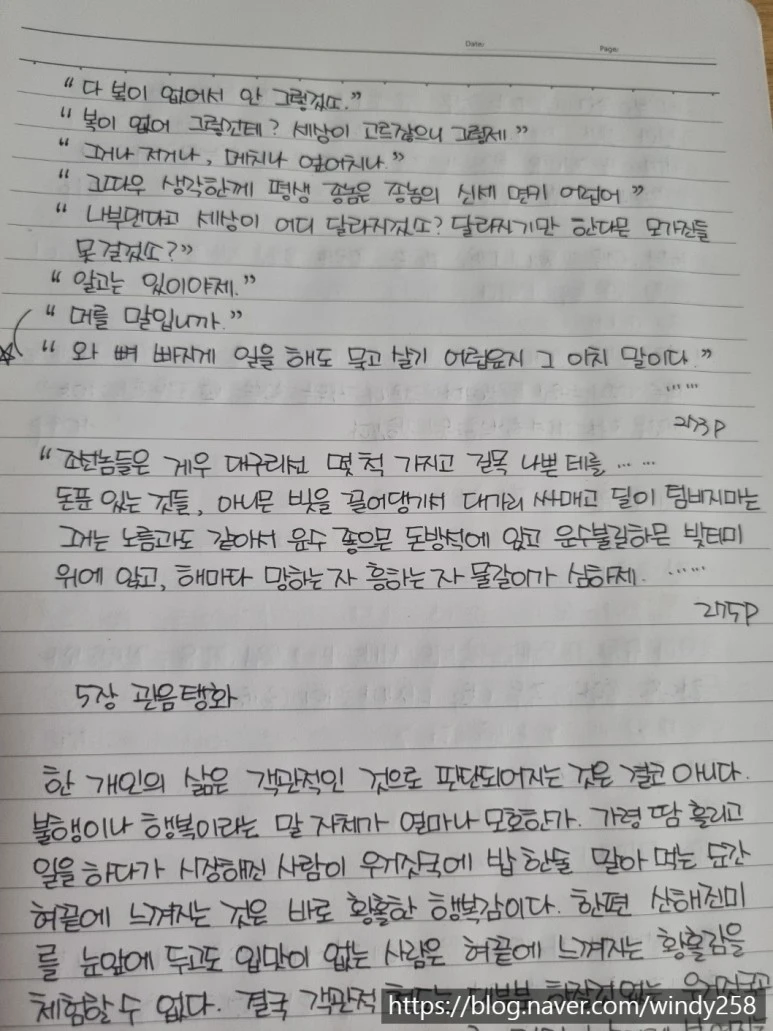 Date:
Page:
“ 다 복이 없어서 안 그렇겄소.”
“ 복이 없어 그렇건테? 세상이 고르잖으니 그렇제 ”
“ 그러나 저러나, 메치나 엎어치나.”
“ 그따우 생각한께 평생 종놈은 종놈의 신세 면키 어렵어 ”
“ 나부댄다고 세상이 어디 달라지겄소? 달라지기만 한다믄 모가진들
못 걸겄소?”
“ 알고는 있이야제.”
“ 머를 말입니까.”
“ 와 뼈 빠지게 일을 해도 묵고 살기 어렵은지 그 이치 말이다.”
……
273P
“ 조선놈들은 게우 대구리선 몇 척 가지고 길목 나쁜 테를 … …
돈푼 있는 것들, 아니믄 빚을 끌어댕기서 대가리 싸매고 딜이 텀비지마는
그거는 노름과도 같아서 운수 좋으믄 돈방석에 앉고 운수불길하믄 빚더미
위에 앉고, 해마다 망하는 자 흥하는 자 물갈이가 심하제. ……
275P
5장 관음탱화
한 개인의 삶은 객관적인 것으로 판단되어지는 것은 결코 아니다.
불행이나 행복이라는 말 자체가 얼마나 모호한가. 가령 땀 흘리고
일을 하다가 시장해진 사람이 우거짓국에 밥 한술 말아 먹는 순간
혀끝에 느껴지는 것은 바로 황홀한 행복감이다. 한편 산해진미
를 눈앞에 두고도 입맛이 없는 사람은 혀끝에 느껴지는 황홀감을
체험할 수 없다. 결국 객관적
https://blog.naver.com/windy258